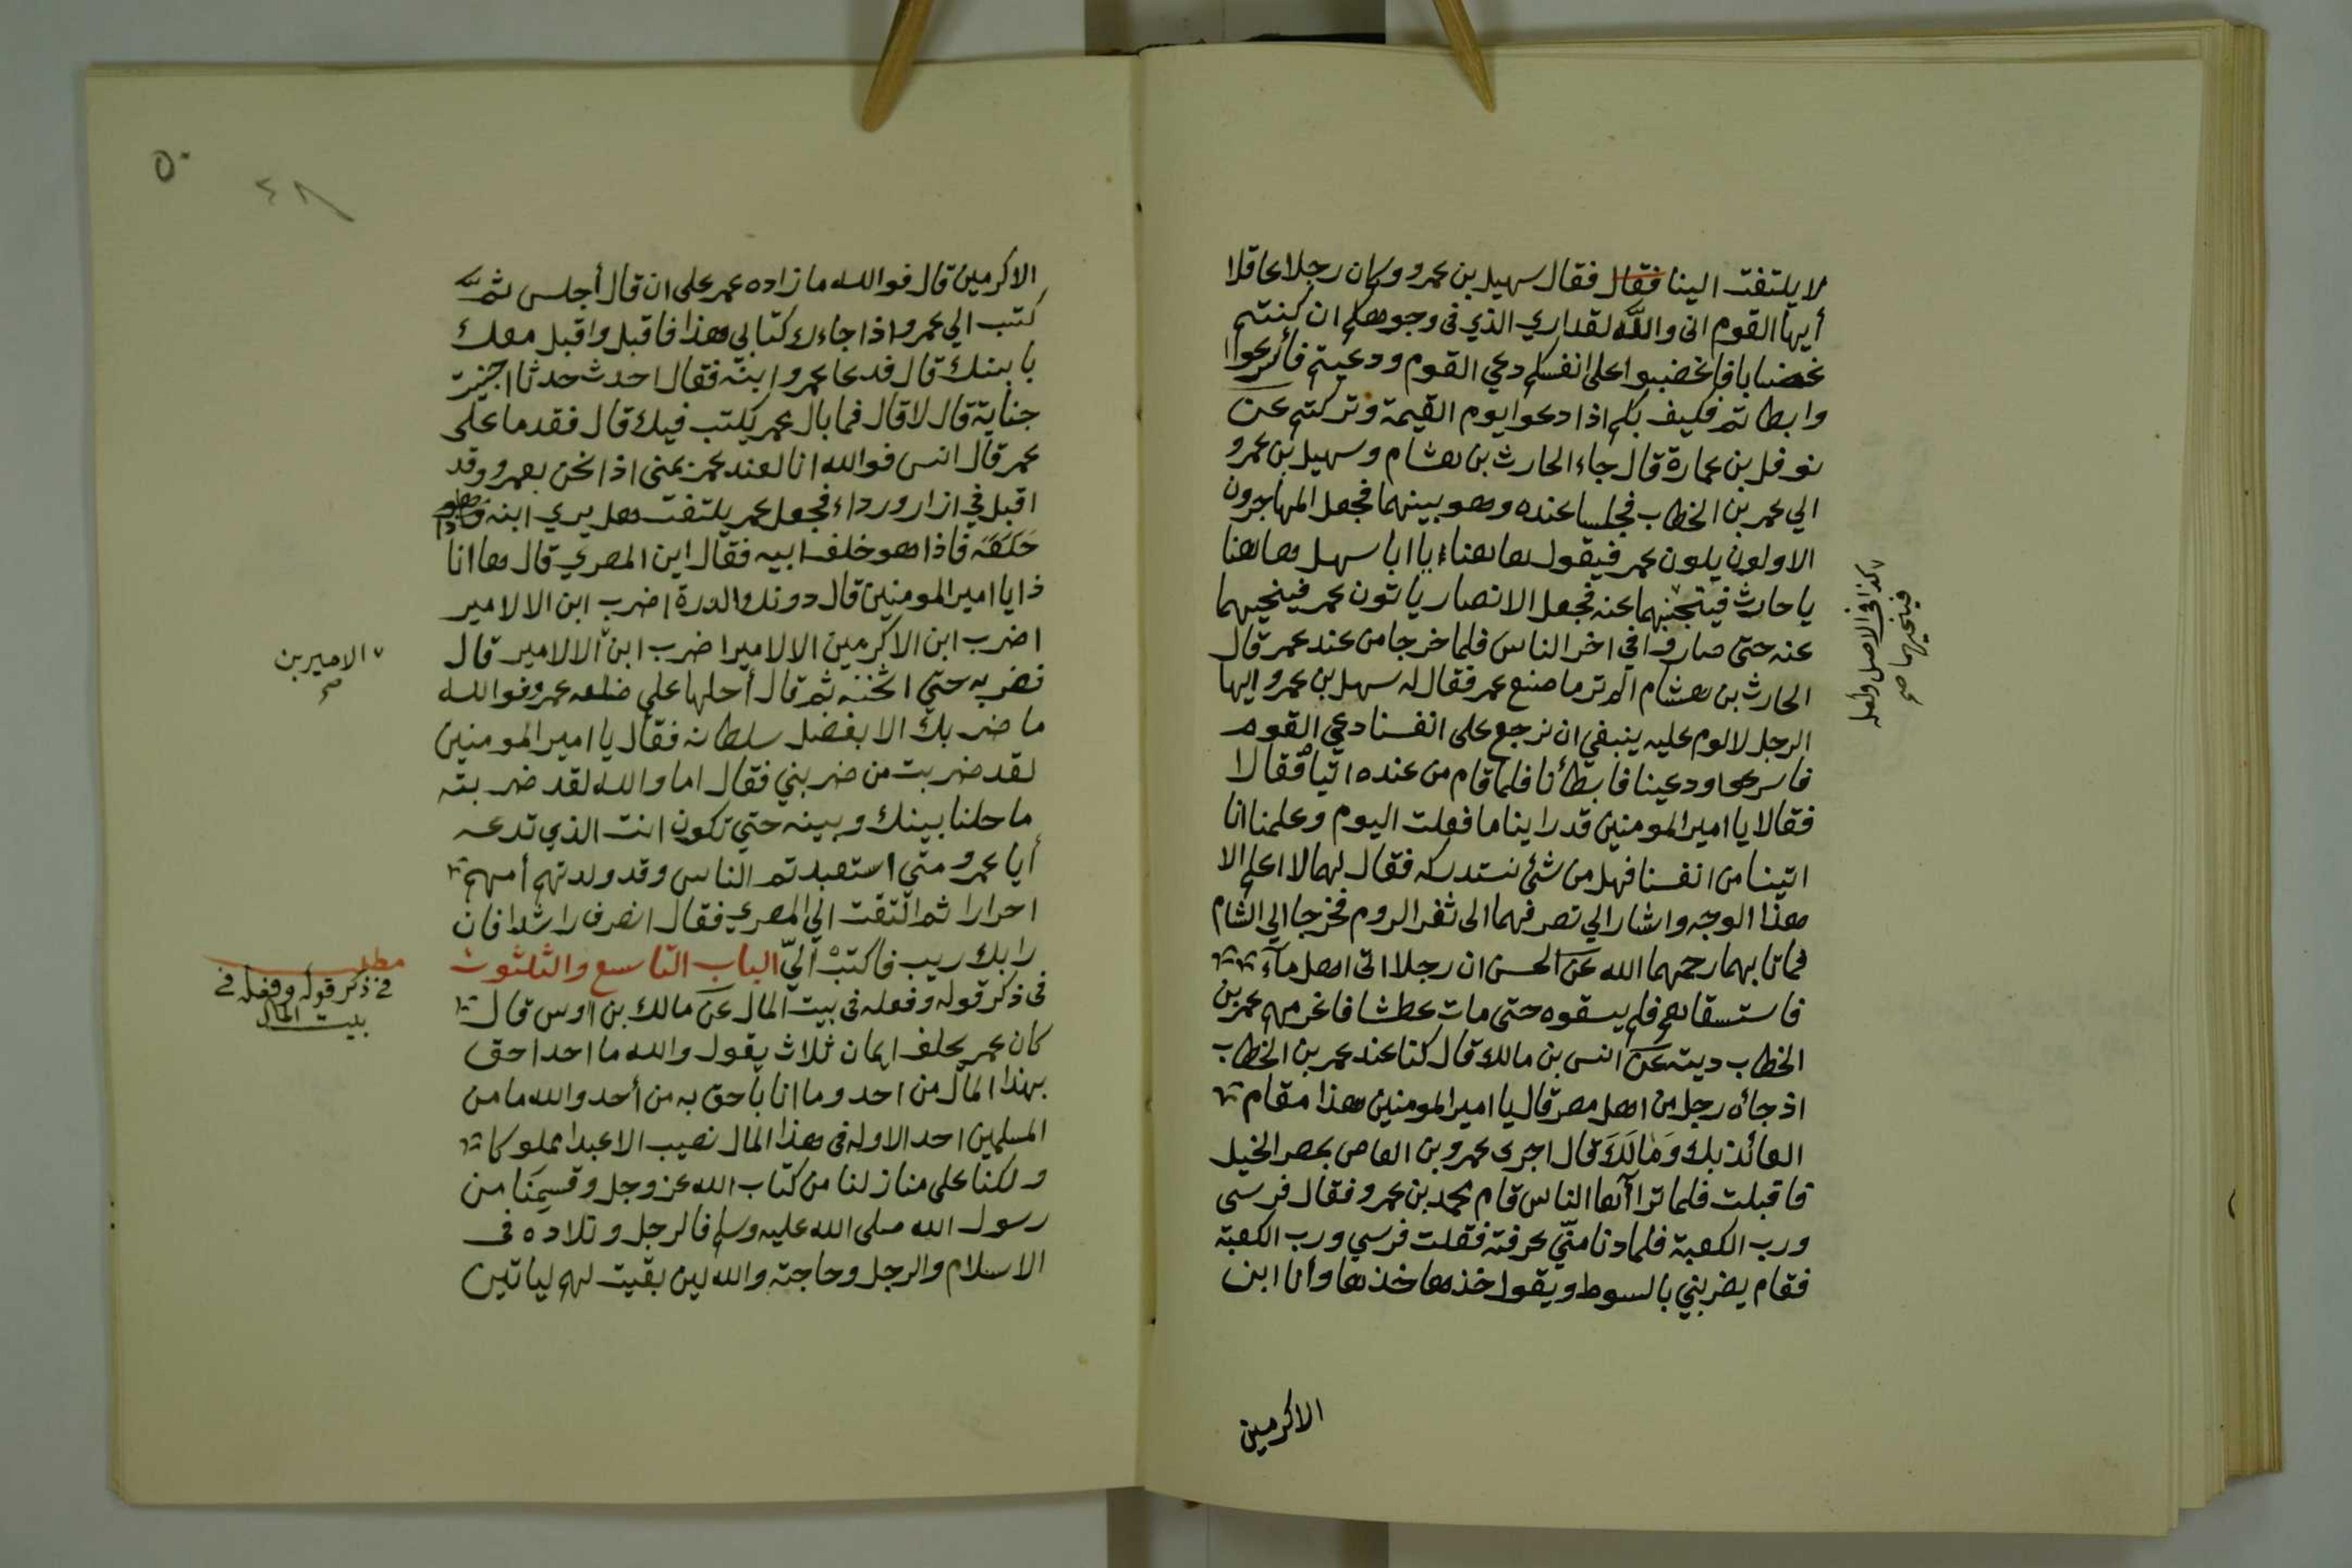 لا يلتفت الينا فقال فقال سهيل بن عمرو وكان رجلا عاقلا
أيها القوم اني والله لقد اري الذي في وجوهكم ان كنتم
غضابا فاغضبوا على انفسكم دعي القوم ودعيتم فأسرعوا
وابطاتم فكيف بكم اذا دعوا يوم القيمة وتركتم عن
نوفل بن عمارة قال جاء الحارث بن هشام وسهيل بن عمرو
الي عمر بن الخطاب فجلسا عنده وهو بينهما فجعل المهاجرون
الاولون يلون عمر فيقول هاهنا يا ابا سهل هاهنا
يا حارث فيتجنبهما عنه فجعل الانصار ياتون عمر فينحيهما
عنه حتى صاروا في اخر الناس فلما خرجا من عند عمر قال
الحارث بن هشام الم تر ما صنع عمر فقال له سهل بن عمرو ايها
الرجل لا لوم عليه ينبغي ان نرجع على انفسنا دعي القوم
فاسرعوا ودعينا فابطأنا فلما قام من عنده اتياه فقالا
فقالا يا امير المومنين قد راينا ما فعلت اليوم وعلمنا انا
اتينا من انفسنا فهل من شئ نستدركه فقال لهما لا اعلم الا
هذا الوجه واشار الي تصرفهما الى ثغر الروم فخرجا الي الشام
فماتا بهما رحمهما الله عن الحسن ان رجلا اتى اهل ماء
فاستسقاهم فلم يسقوه حتى مات عطشا فاغرمهم عمر بن
الخطاب ديته عن انس بن مالك قال كنا عند عمر بن الخطاب
اذ جأه رجل من اهل مصر قال يا امير المومنين هذا مقام
العائذ بك وَمَالَكَ قال اجرى عمرو بن العاص بمصر الخيل
فاقبلت فلما تراآها الناس قام محمد بن عمرو فقال فرسي
ورب الكعبة فلما دنا منّي عرفته فقلت فرسي ورب الكعبة
فقام يضربني بالسوط ويقول خذها خذها وأنا ابن
الاكرمين
كذا في الاصل ولعله
فينحيهما صح
٥٠
٤٨
الاكرمين قال فوالله ما زاده عمر على ان قال أجلس ثم
كتب الي عمرو اذا جاءك كتابي هذا فاقبل واقبل معك
بابنك قال فدعا عمرو ابنه فقال احدثت حدثا اجنيت
جناية قال لا قال فما بال عمر يكتب فيك قال فقدما على
عمر قال انس فوالله انا لعند عمر بمنى اذا نحن بعمرو وقد
اقبل في ازار ورداء فجعل عمر يلتفت هل يري ابنه
خَلفَه فاذا هو خلف ابيه فقال اين المصري قال ها انا
ذا يا امير المومنين قال دونك الدرة اضرب ابن الا لامير
اضرب ابن الاكرمين الا لامير اضرب ابن الا لامير قال
فضربه حتي اثخنه ثم قال أحلها على ضلعه عمرو فوالله
ما ضربك الا بفضل سلطانه فقال يا امير المومنين
لقد ضربت من ضربني فقال اما والله لقد ضربته
ما حلنا بينك وبينه حتي تكون انت الذي تدعه
أيا عمرو متى استعبدتم الناس وقد ولدتهم أمهم
احرارا ثم التفت الي المصري فقال انصرف راشدا فان
رابك ريب فاكتب اليّ الباب التاسع والثلثون
في ذكر قوله وفعله في بيت المال عن مالك بن اوس قال
كان عمر يحلف ايمان ثلاث يقول والله ما احد احق
بهذا المال من احد وما انا بأحق به من أحد والله ما من
المسلمين احد الا وله في هذا المال نصيب الا عبدا مملوكا
ولكنا على منازلنا من كتاب الله عز وجل وقسيمنا من
رسول الله صلى الله عليه وسلم فالرجل وتلاده في
الاسلام والرجل وحاجته والله لين بقيت لهم لياتين
الاميرين
صح
مطلب
في ذكر قوله وفعله في
بيت المال